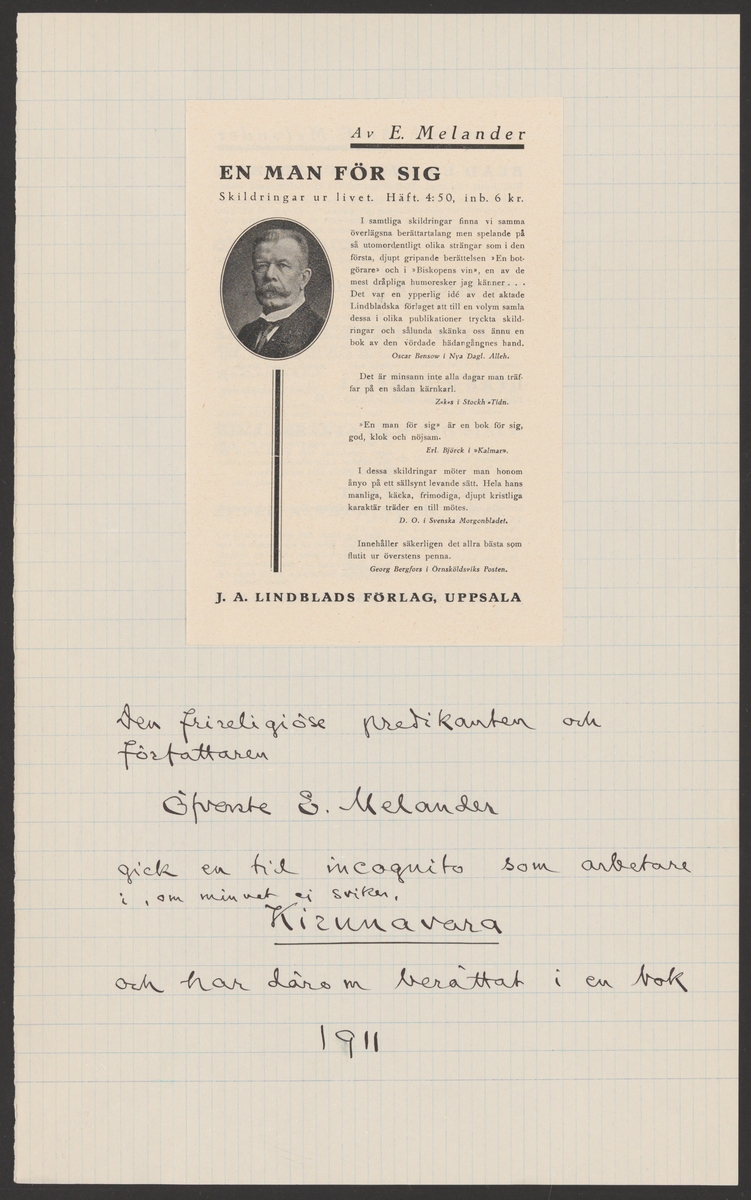 Av E. Melander
EN MAN FÖR SIG
Skildringar ur livet. Häft. 4:50, inb. 6 kr.
I samtliga skildringar finna vi samma
överlägsna berättartalang men spelande på
så utomordentligt olika strängar som i den
första, djupt gripande berättelsen »En bot-
görare» och i »Biskopens vin», en av de
mest dråpliga humoresker jag känner . . .
Det var en ypperlig idé av det aktade
Lindbladska förlaget att till en volym samla
dessa i olika publikationer tryckta skild-
ringar och sålunda skänka oss ännu en
bok av den vördade hädangångnes hand.
Oscar Bensow i Nya Dagl. Alleh.
Det är minsann inte alla dagar man träf-
far på en sådan kärnkarl.
Z»k»s i Stockh.»Tidn.
»En man för sig» är en bok för sig,
god, klok och nöjsam.
Erl. Björck i »Kalmar».
I dessa skildringar möter man honom
ånyo på ett sällsynt levande sätt. Hela hans
manliga, käcka, frimodiga, djupt kristliga
karaktär träder en till mötes.
D. O. i Svenska Morgonbladet.
Innehåller säkerligen det allra bästa som
flutit ur överstens penna.
Georg Bergfors i Örnsköldsviks Posten.
J. A. LINDBLADS FÖRLAG, UPPSALA
Den frireligiöse predikanten och
författaren
Öfverste E. Melander
gick en tid incognito som arbetare
i, om minnet ej sviker,
Kirunavara
och har därom berättat i en bok
1911